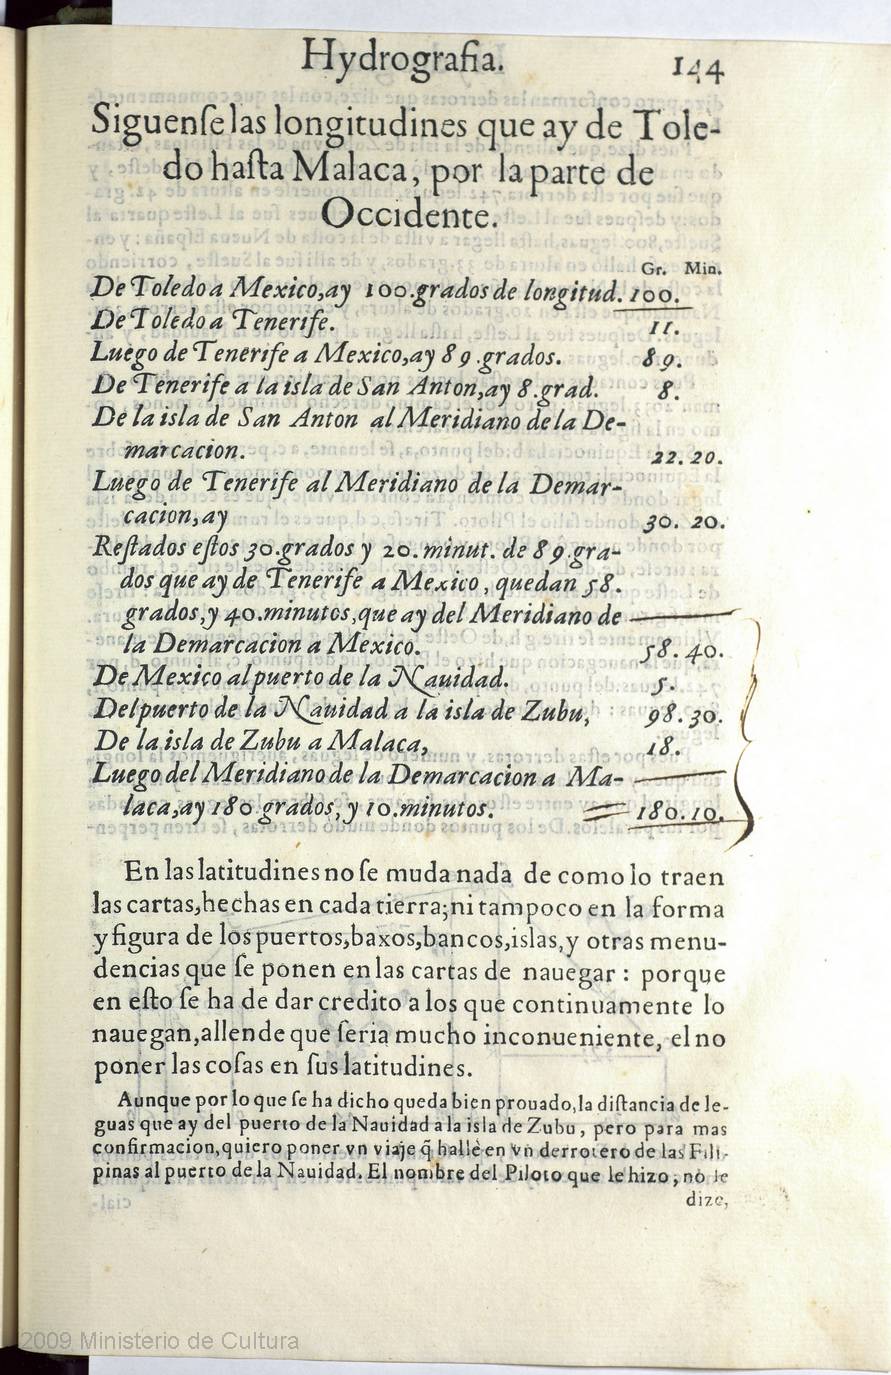 Hydrografia. 144
Siguenſe las longitudines que ay de Tole-
do haſta Malaca, por la parte de
Occidente.
Gr. Min.
De Toledo a Mexico, ay 100. grados de longitud. 100.
De Toledo a Tenerife. 11.
Luego de Tenerife a Mexico, ay 89. grados. 89.
De Tenerife a la isla de San Anton, ay 8. grad. 8.
De la isla de San Anton al Meridiano de la De-
marcacion. 22. 20.
Luego de Tenerife al Meridiano de la Demar-
cacion, ay 30. 20.
Reſtados eſtos 30. grados y 20. minut. de 89. gra-
dos que ay de Tenerife a Mexico, quedan 58.
grados, y 40. minutos, que ay del Meridiano de
la Demarcacion a Mexico. 58. 40.
De Mexico al puerto de la Nauidad. 5.
Del puerto de la Nauidad a la isla de Zubu, 98. 30.
De la isla de Zubu a Malaca, 18.
Luego del Meridiano de la Demarcacion a Ma-
laca, ay 180 grados, y 10. minutos. 180. 10.
En las latitudines no ſe muda nada de como lo traen
las cartas, hechas en cada tierra; ni tampoco en la forma
y figura de los puertos, baxos, bancos, islas, y otras menu-
dencias que ſe ponen en las cartas de nauegar : porque
en eſto ſe ha de dar credito a los que continuamente lo
nauegan, allende que ſeria mucho inconueniente, el no
poner las coſas en ſus latitudines.
Aunque por lo que ſe ha dicho queda bien prouado, la diſtancia de le-
guas que ay del puerto de la Nauidad a la isla de Zubu, pero para mas
confirmacion, quiero poner vn viaje q̃ hallè en vn derrotero de las Fili-
pinas al puerto de la Nauidad. El nombre del Piloto que le hizo, no le
dize,
2009 Ministerio de Cultura